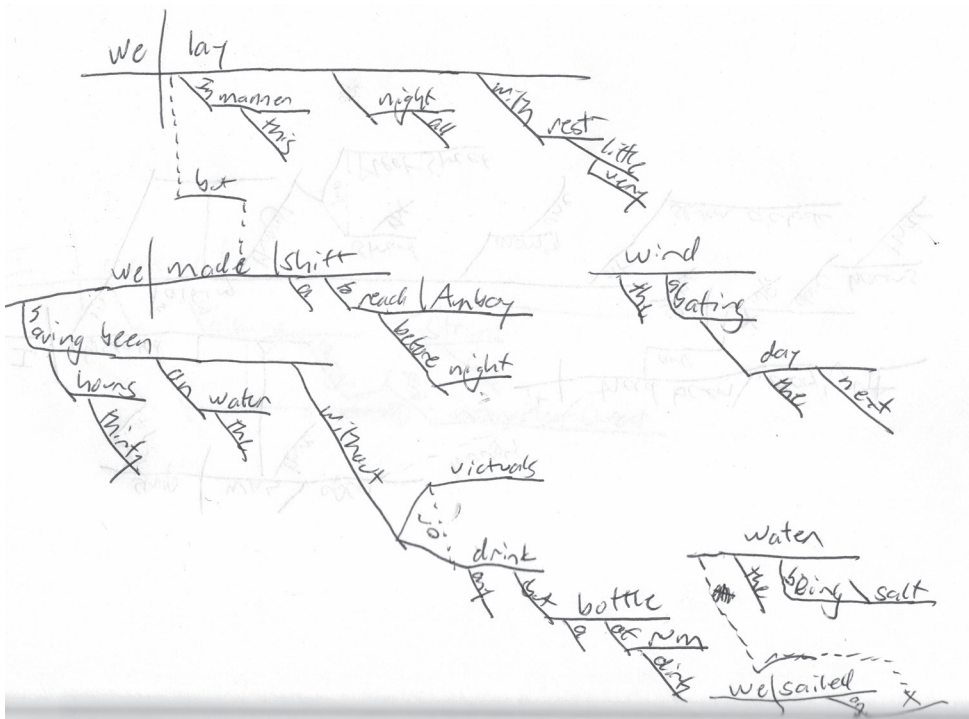 we lay
in manner this
night all
with rest little very
but
we made shift a
to reach Amboy
before night
wind the abating
day the next
having been
hours thirty
on water the
without victuals
or
drink any
but bottle a
of rum dirty
water the being salt
we sailed on
x